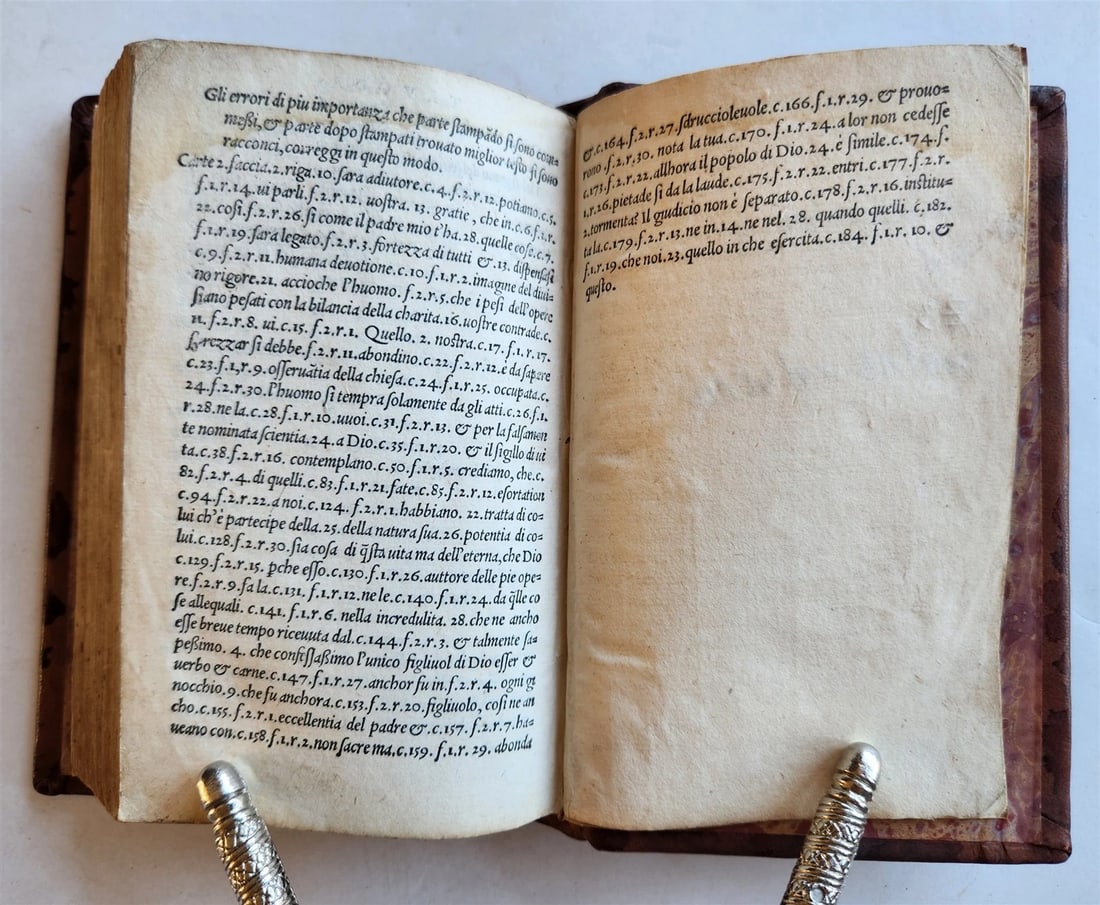 Gli errori di piu importanza che parte stampādo si sono com-
messi, & parte dopo stampati trouato miglior testo si sono
racconci, correggi in questo modo.
Carte 2. faccia. 2. riga. 10. sara adiutore. c. 4. f. 2. r. 12. potiano. c. 5.
f. 1. r. 14. ui parli. f. 2. r. 12. uostra. 13. gratie, che in. c. 6. f. 1. r.
22. cosi. f. 2. r. 26. si come il padre mio t'ha. 28. quelle cose. c. 7.
f. 1. r. 19. sara legato. f. 2. r. 3. fortezza di tutti &. 13. dispensasti
c. 9. f. 2. r. 11. humana deuotione. c. 10. f. 1. r. 2. imagine del diui-
no rigore. 21. accioche l'huomo. f. 2. r. 5. che i pesi dell'opere
siano pesati con la bilancia della charita. 16. uostre contrade. c.
11. f. 2. r. 8. ui. c. 15. f. 2. r. 1. Quello. 2. nostra. c. 17. f. 1. r. 17.
sprezzar si debbe. f. 2. r. 11. abondino. c. 22. f. 2. r. 12. è da sapere
c. 23. f. 1. r. 9. osseruātia della chiesa. c. 24. f. 1. r. 25. occupata. c.
24. f. 2. r. 30. l'huomo si tempra solamente da gli atti. c. 26. f. 1.
r. 28. ne la. c. 28. f. 1. r. 10. uuoi. c. 31. f. 2. r. 13. & per la falsamen
te nominata scientia. 24. a Dio. c. 35. f. 1. r. 20. & il sigillo di ui
ta. c. 38. f. 2. r. 16. contemplano. c. 50. f. 1. r. 5. crediamo, che. c.
82. f. 2. r. 4. di quelli. c. 83. f. 1. r. 21. fate. c. 85. f. 2. r. 12. esortation
c. 94. f. 2. r. 22. a noi. c. 124. f. 2. r. 1. habbiano. 22. tratta di co-
lui ch'è partecipe della. 25. della natura sua. 26. potentia di co-
lui. c. 128. f. 2. r. 30. sia cosa di q̄sta uita ma dell'eterna, che Dio
c. 129. f. 2. r. 15. ꝑche esso. c. 130. f. 1. r. 26. auttore delle pie ope-
re. f. 2. r. 9. fa la. c. 131. f. 1. r. 12. ne le. c. 140. f. 1. r. 24. da q̄lle co
se allequali. c. 141. f. 1. r. 6. nella incredulita. 28. che ne ancho
esse breue tempo riceuuta dal. c. 144. f. 2. r. 3. & talmente sa-
pessimo. 4. che confessassimo l'unico figliuol di Dio esser &
uerbo & carne. c. 147. f. 1. r. 27. anchor fu in. f. 2. r. 4. ogni gi
nocchio. 9. che fu anchora. c. 153. f. 2. r. 20. figliuolo, cosi ne an
cho. c. 155. f. 2. r. 1. eccellentia del padre &. c. 157. f. 2. r. 7. ha-
ueano con. c. 158. f. 1. r. 2. non sacre ma. c. 159. f. 1. r. 29. abonda
&. c. 164. f. 2. r. 27. sdruccioleuole. c. 166. f. 1. r. 29. & prouo-
rono. f. 2. r. 30. nota la tua. c. 170. f. 1. r. 24. a lor non cedesse
c. 173. f. 2. r. 22. allhora il popolo di Dio. 24. è simile. c. 174. f.
1. r. 26. pietade si da la laude. c. 175. f. 2. r. 22. entri. c. 177. f. 2. r.
2. tormenta? Il giudicio non è separato. c. 178. f. 2. r. 16. institu-
ta la. c. 179. f. 2. r. 13. ne in. 14. ne nel. 28. quando quelli. c. 182.
f. 1. r. 19. che noi. 23. quello in che esercita. c. 184. f. 1. r. 10. &
questo.